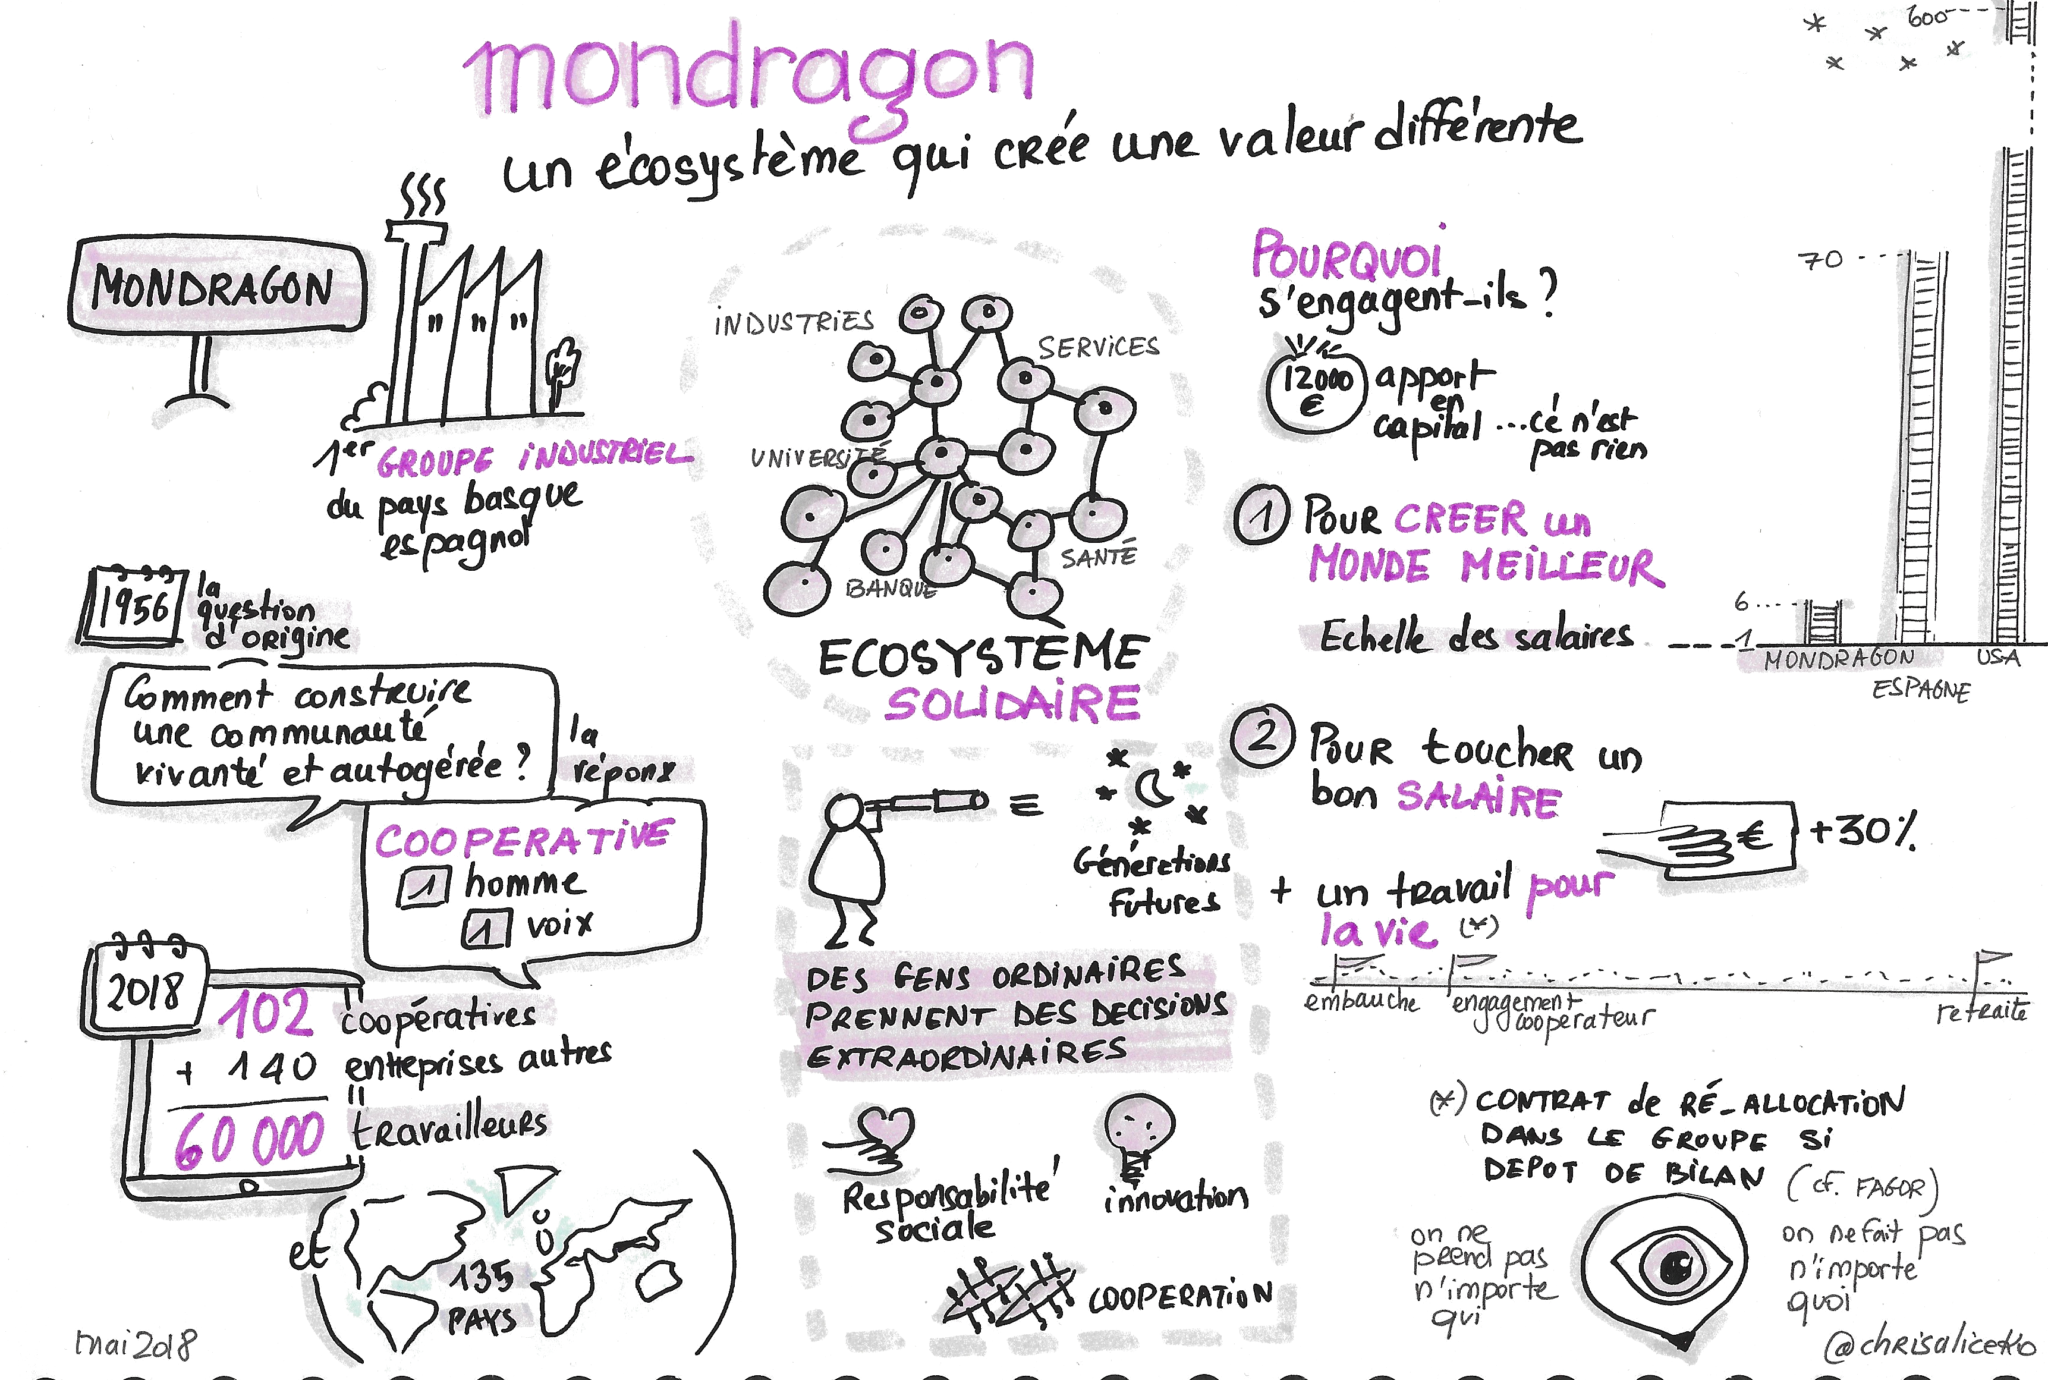 mondragon
un écosystème qui crée une valeur différente
MONDRAGON
1er GROUPE iNDUSTRIEL
du pays basque
espagnol
1956
la
question
d'origine
Comment construire
une communauté
vivante et autogérée ?
la
réponse
COOPERATiVE
1 homme
1 voix
2018
102 coopératives
+ 140 entreprises autres
60 000 travailleurs
et
135
PAYS
mai 2018
iNDUSTRiES
SERViCES
UNiVERSiTÉ
SANTÉ
BANQUE
ECOSYSTEME
SOLiDAiRE
=
Générations
Futures
DES GENS ORDiNAiRES
PRENNENT DES DECiSiONS
EXTRAORDiNAiRES
Responsabilité
sociale
innovation
COOPERATiON
POURQUOi
s'engagent-ils ?
12000
€
apport
en
capital ...cé n'est
pas rien
1 POUR CREER un
MONDE MEiLLEUR
Echelle des salaires
600
70
6
1
MONDRAGON
ESPAGNE
USA
2 POUR toucher un
bon SALAiRE
€ +30%
+ un travail pour
la vie (*)
embauche
engagement
cooperateur
retraite
(*) CONTRAT de RÉ-ALLOCATiON
DANS LE GROUPE Si
DEPOT DE BiLAN (cf. FAGOR)
on ne
prend pas
n'importe
qui
on ne fait pas
n'importe
quoi